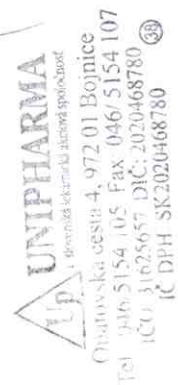 UP
UNIPHARMA
Slovenská lekárnická akciová spoločnosť
Opatovská cesta 4, 972 01 Bojnice
Tel 046/5154 105 Fax 046/5154 107
IČO 31625657 DIČ: 2020468780
IČ DPH SK2020468780
38